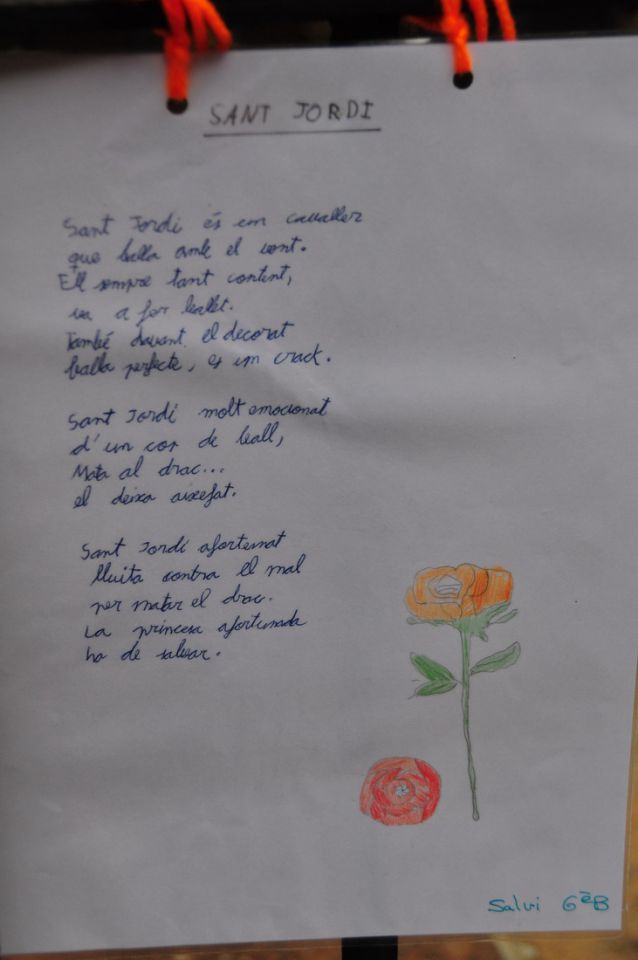 SANT JORDI
Sant Jordi és um cavaller
que balla amb el vent.
Ell sempre tant content,
va a fer ballet.
També davant el decorat
balla perfecte, es um crack.
Sant Jordi molt emocionat
d'un cop de ball,
Mata al drac...
el deixa aixefat.
Sant Jordi afortunat
lluita contra el mal
per matar el drac.
La princesa afortunada
ha de salvar.
Salvi 6èB